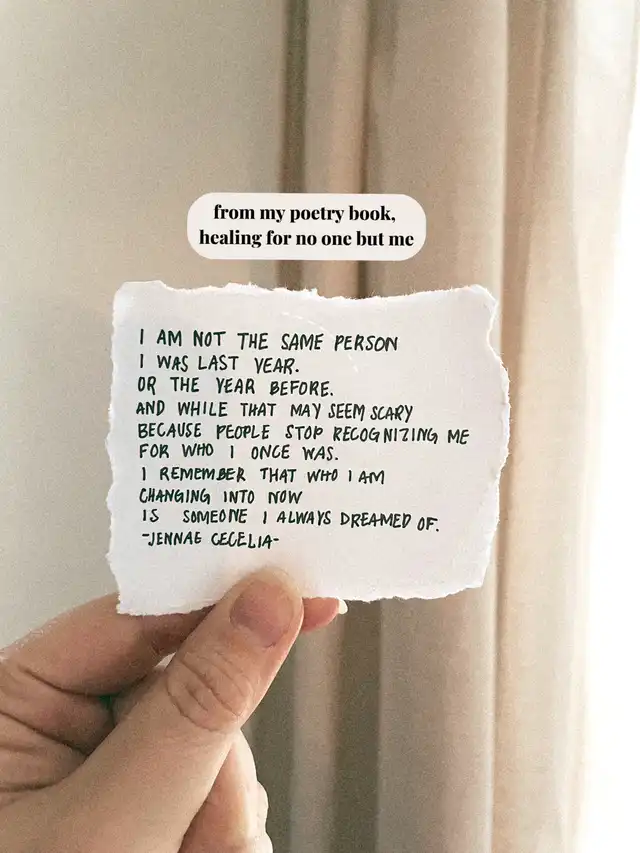 from my poetry book,
healing for no one but me
I AM NOT THE SAME PERSON
I WAS LAST YEAR.
OR THE YEAR BEFORE.
AND WHILE THAT MAY SEEM SCARY
BECAUSE PEOPLE STOP RECOGNIZING ME
FOR WHO I ONCE WAS.
I REMEMBER THAT WHO I AM
CHANGING INTO NOW
IS SOMEONE I ALWAYS DREAMED OF.
-JENNAE CECELIA-